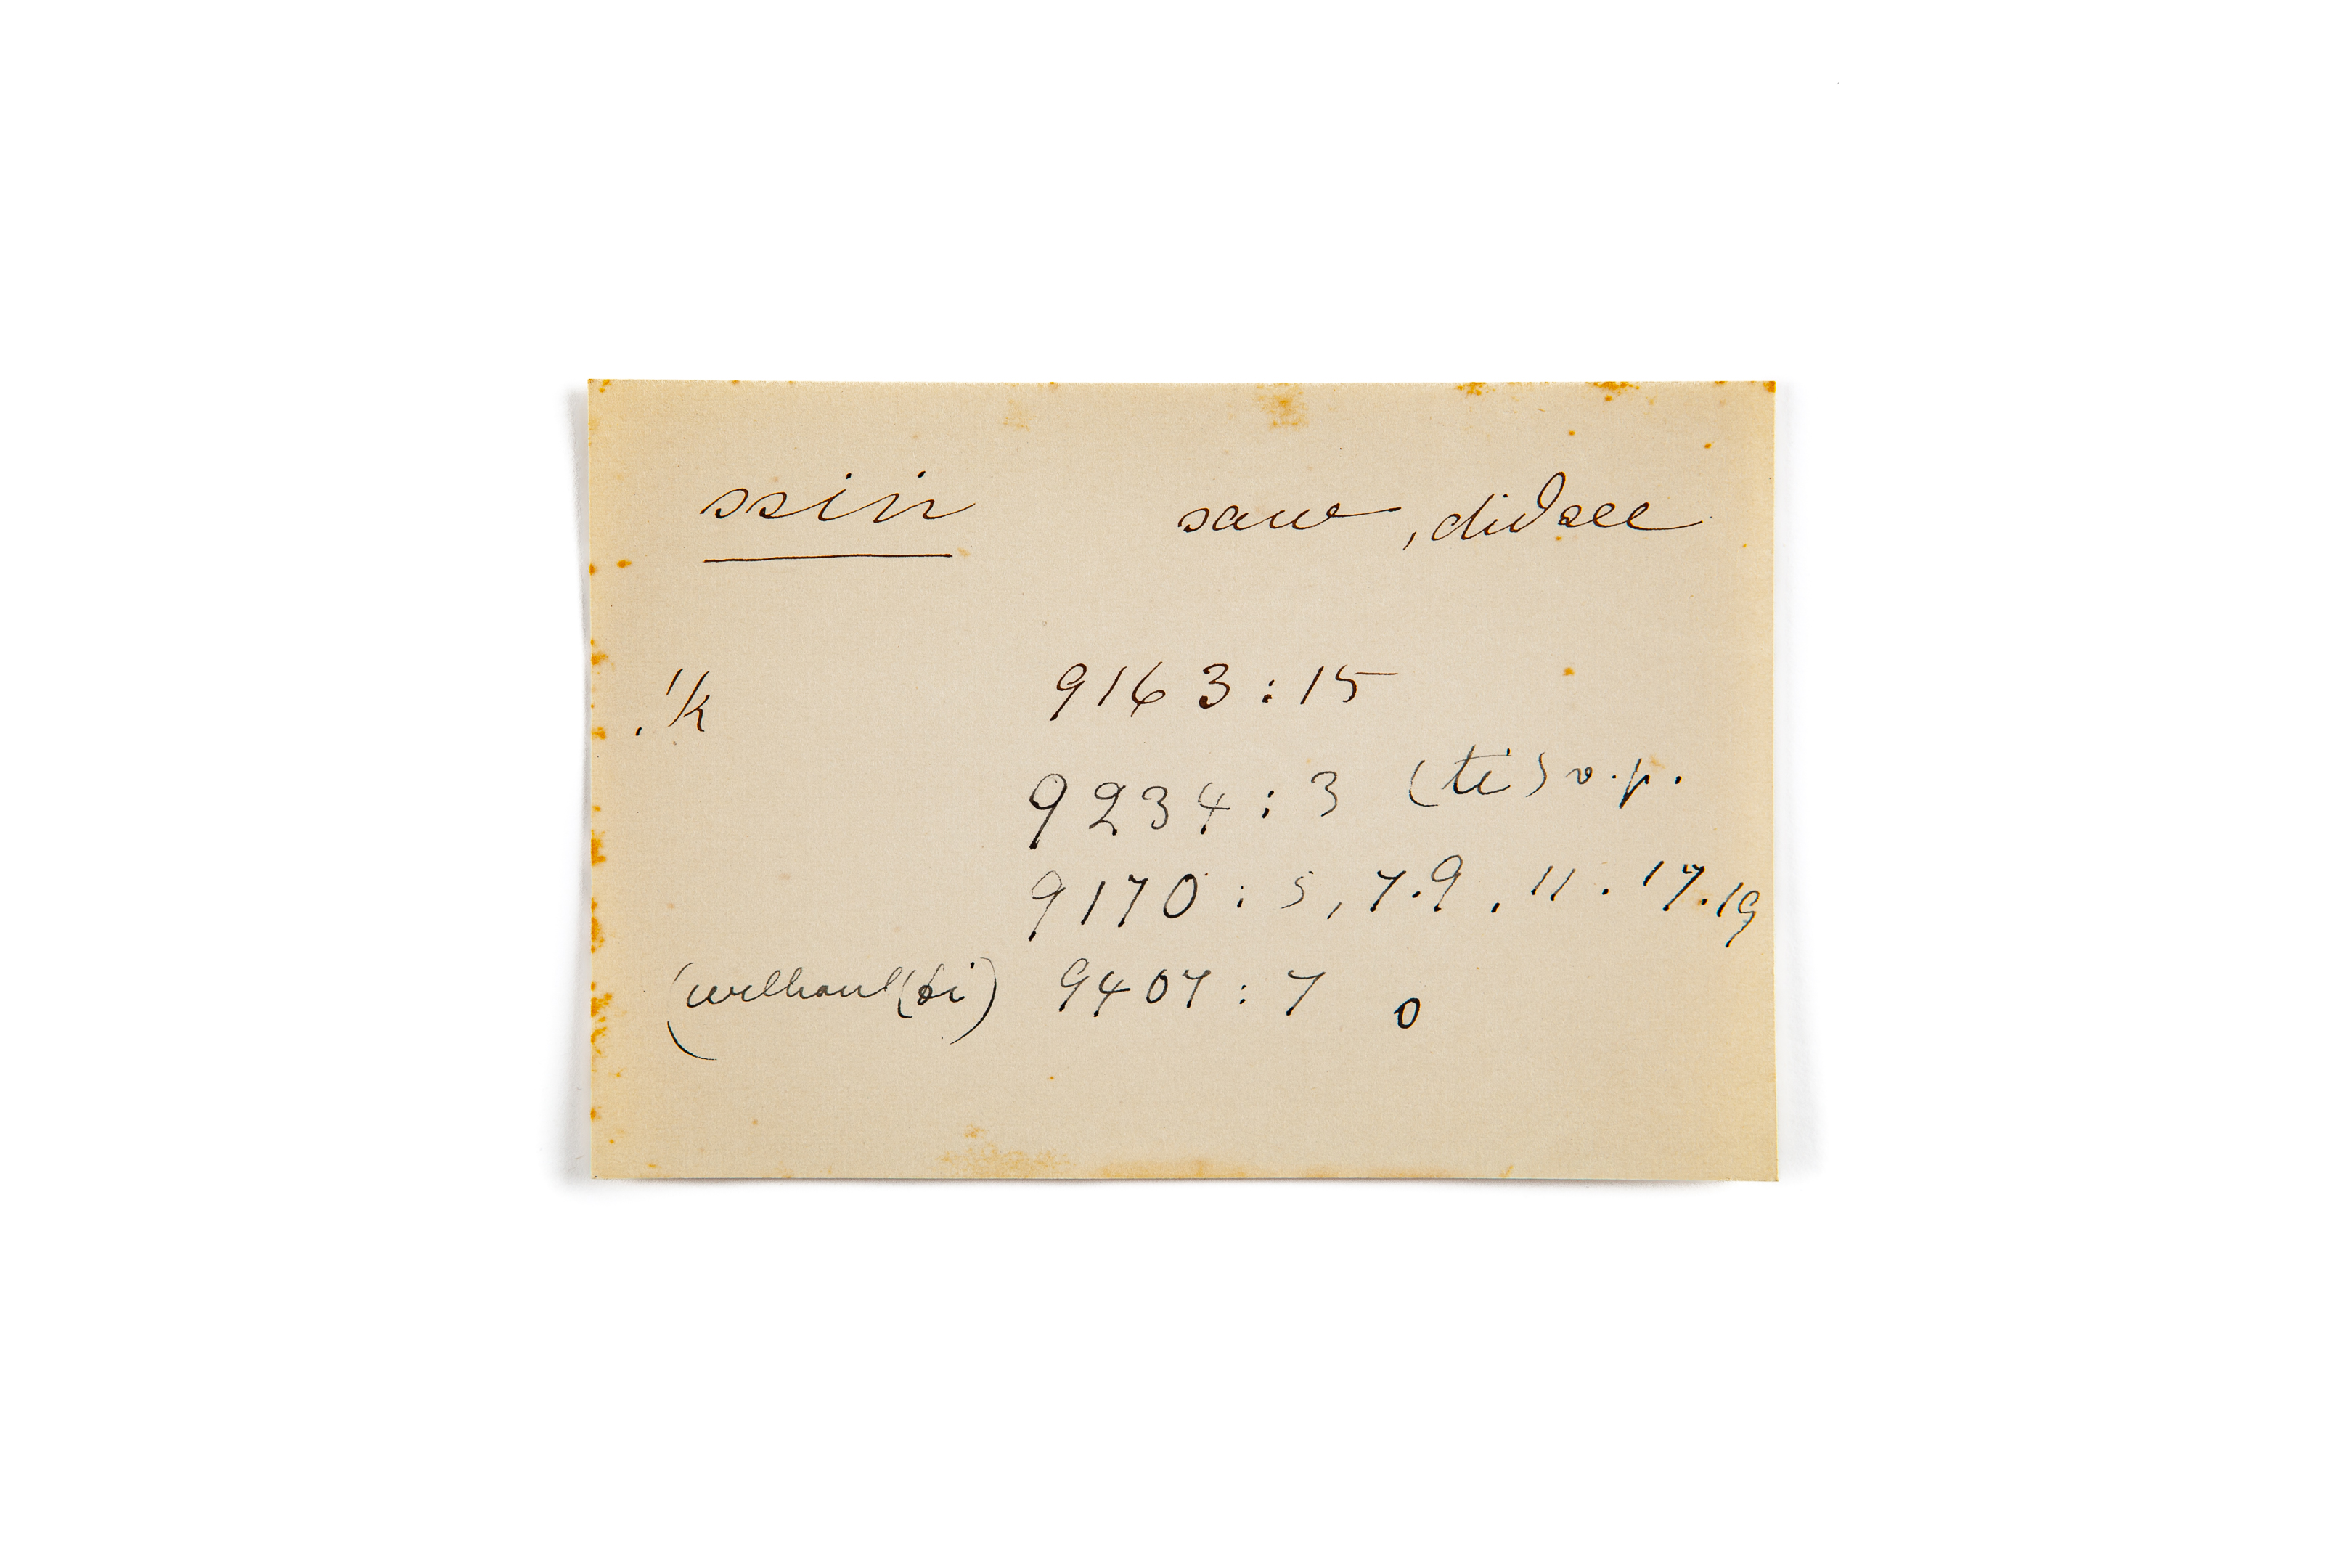 ssin saw, did see
!k 9163:15
9234:3 (ti) v.p.
9170:5, 7.9, 11. 17.19
(without (ti) 9407:7